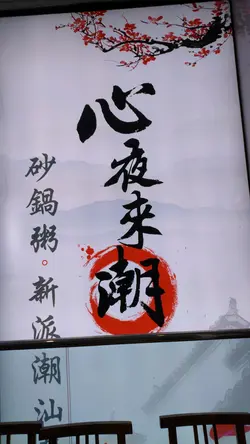 心夜來潮
砂鍋粥。新派潮汕